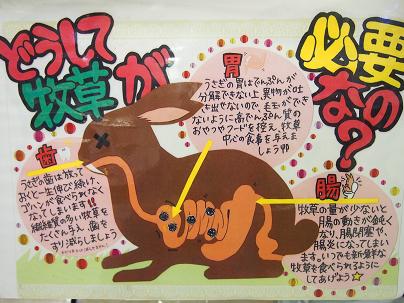 どうして
牧草が
必要
なの?
胃
うさぎの胃はでんぷんが
分解できない上、異物が吐
き出せないので、毛玉ができ
ないように高でんぷん質の
おやつやフードを控え、牧草
中心の食事を与えま
しょう!!
歯
うさぎの歯は放って
おくと一生伸び続け、
ゴハンが食べられなく
なってしまいます!!
繊維質の多い牧草を
たくさん与え、歯を
すり減らしましょう
腸
牧草の量が少ないと
腸の動きが鈍く
なり、腸閉塞や、
腸炎になってしまい
ます。いつでも新鮮な
牧草を食べられるように
してあげよう